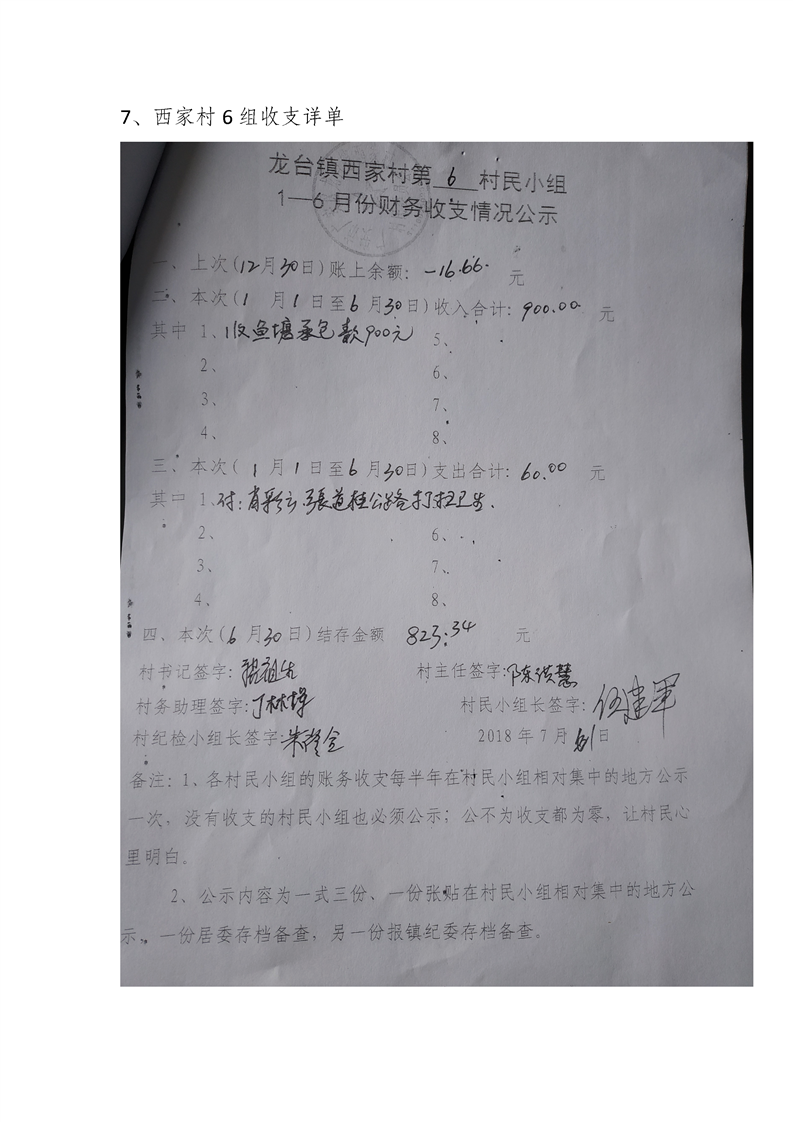 7、西家村 6 组收支详单
龙台镇西家村第 6 村民小组
1—6 月份财务收支情况公示
一、上次(12月30日)账上余额: -16.66. 元
二、本次(1 月1 日至6 月30日)收入合计: 900.00 元
其中 1、收鱼塘承包款900元 5、
2、 6、
3、 7、
4、 8、
三、本次( 1 月1 日至6 月30日)支出合计: 60.00 元
其中 1、付:肖彩云 张道桂公路打扫卫生.
2、 6、
3、 7、
4、 8、
四、本次(6 月30日)结存金额 823.34 元
村书记签字: 村主任签字:陈洪慧
村务助理签字:丁林 村民小组长签字:伍建军
村纪检小组长签字:朱 2018 年 7 月 日
备注: 1、各村民小组的账务收支每半年在村民小组相对集中的地方公示
一次, 没有收支的村民小组也必须公示; 公不为收支都为零, 让村民心
里明白。
2、公示内容为一式三份、一份张贴在村民小组相对集中的地方公
示, 一份居委存档备查, 另一份报镇纪委存档备查。